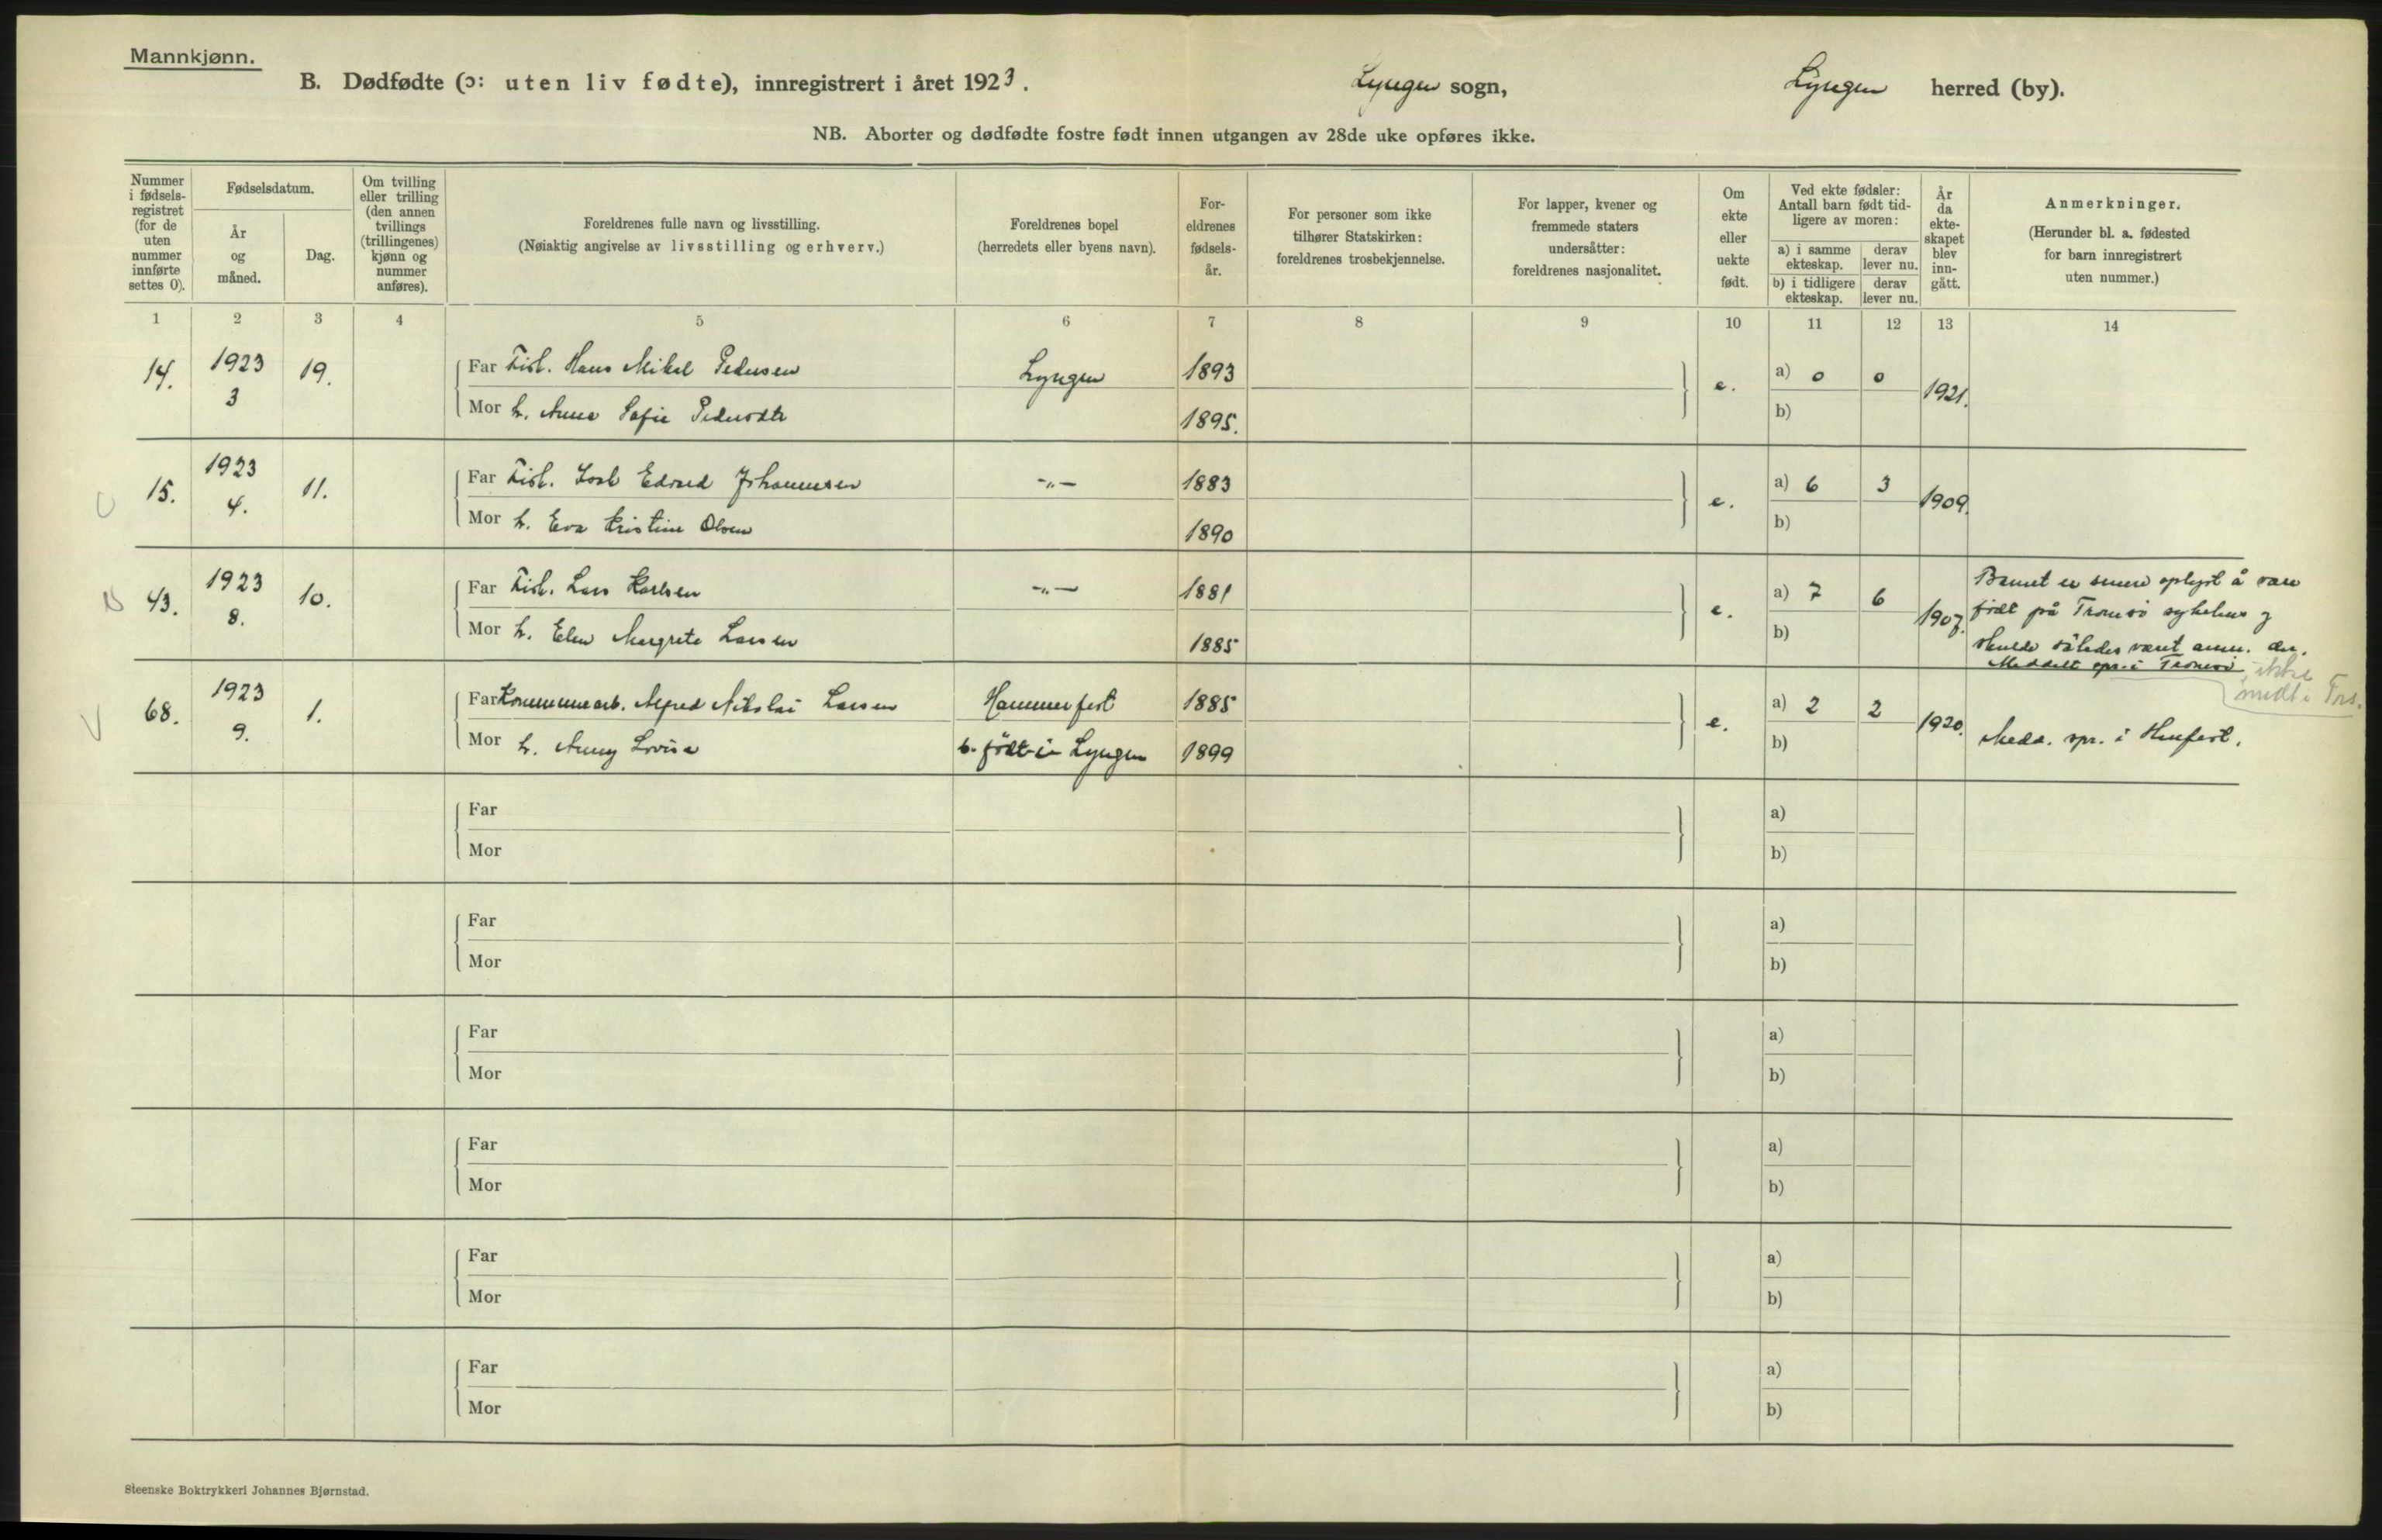 Mannkjønn.
B. Dødfødte (ɔ: uten liv fødte), innregistrert i året 1923.
Lyngen sogn,
Lyngen herred (by).
NB. Aborter og dødfødte fostre født innen utgangen av 28de uke opføres ikke.
Nummer
i fødsels-
registret
(for de
uten
nummer
innførte
settes 0).
Fødselsdatum.
År
og
måned.
Dag.
Om tvilling
eller trilling
(den annen
tvillings
(trillingenes)
kjønn og
nummer
anføres).
Foreldrenes fulle navn og livsstilling.
(Nøiaktig angivelse av livsstilling og erhverv.)
Foreldrenes bopel
(herredets eller byens navn).
For-
eldrenes
fødsels-
år.
For personer som ikke
tilhører Statskirken:
foreldrenes trosbekjennelse.
For lapper, kvener og
fremmede staters
undersåtter:
foreldrenes nasjonalitet.
Om
ekte
eller
uekte
født.
Ved ekte fødsler:
Antall barn født tid-
ligere av moren:
a) i samme
ekteskap.
derav
lever nu.
b) i tidligere
ekteskap.
derav
lever nu.
År
da
ekte-
skapet
blev
inn-
gått.
Anmerkninger.
(Herunder bl. a. fødested
for barn innregistrert
uten nummer.)
1 2 3 4 5 6 7 8 9 10 11 12 13 14
14. 1923 19. Far Fisk. Hans Mikal Pedersen Lyngen 1893 e. a) 0 0 1921.
3 Mor h. Anna Sofie Pedersdtr 1895. b)
15. 1923 11. Far Fisk. Edvard Johannesen -"- 1883 e. a) 6 3 1909.
4. Mor h. Eva Kristine Olsen 1890 b)
43. 1923 10. Far Fisk. Lars Karlsen -"- 1881 e. a) 7 6 1907.
8. Mor h. Elen Margrete Larsen 1885 b)
Barnet er senere oplyst å være
født på Tromsö sykehus og
skulde således været anm. der.
Meddelt spr. i Tromsö
ikke
medt i Trs.
68. 1923 1. Far Kommunearb. Alfred Nikolai Larsen Hammerfest 1885 e. a) 2 2 1920.
9. Mor h. Anny Lovisa b. født i Lyngen 1899 b)
Medd. spr. i Hmfest.
Far a)
Mor b)
Far a)
Mor b)
Far a)
Mor b)
Far a)
Mor b)
Far a)
Mor b)
Far a)
Mor b)
Steenske Boktrykkeri Johannes Bjørnstad.